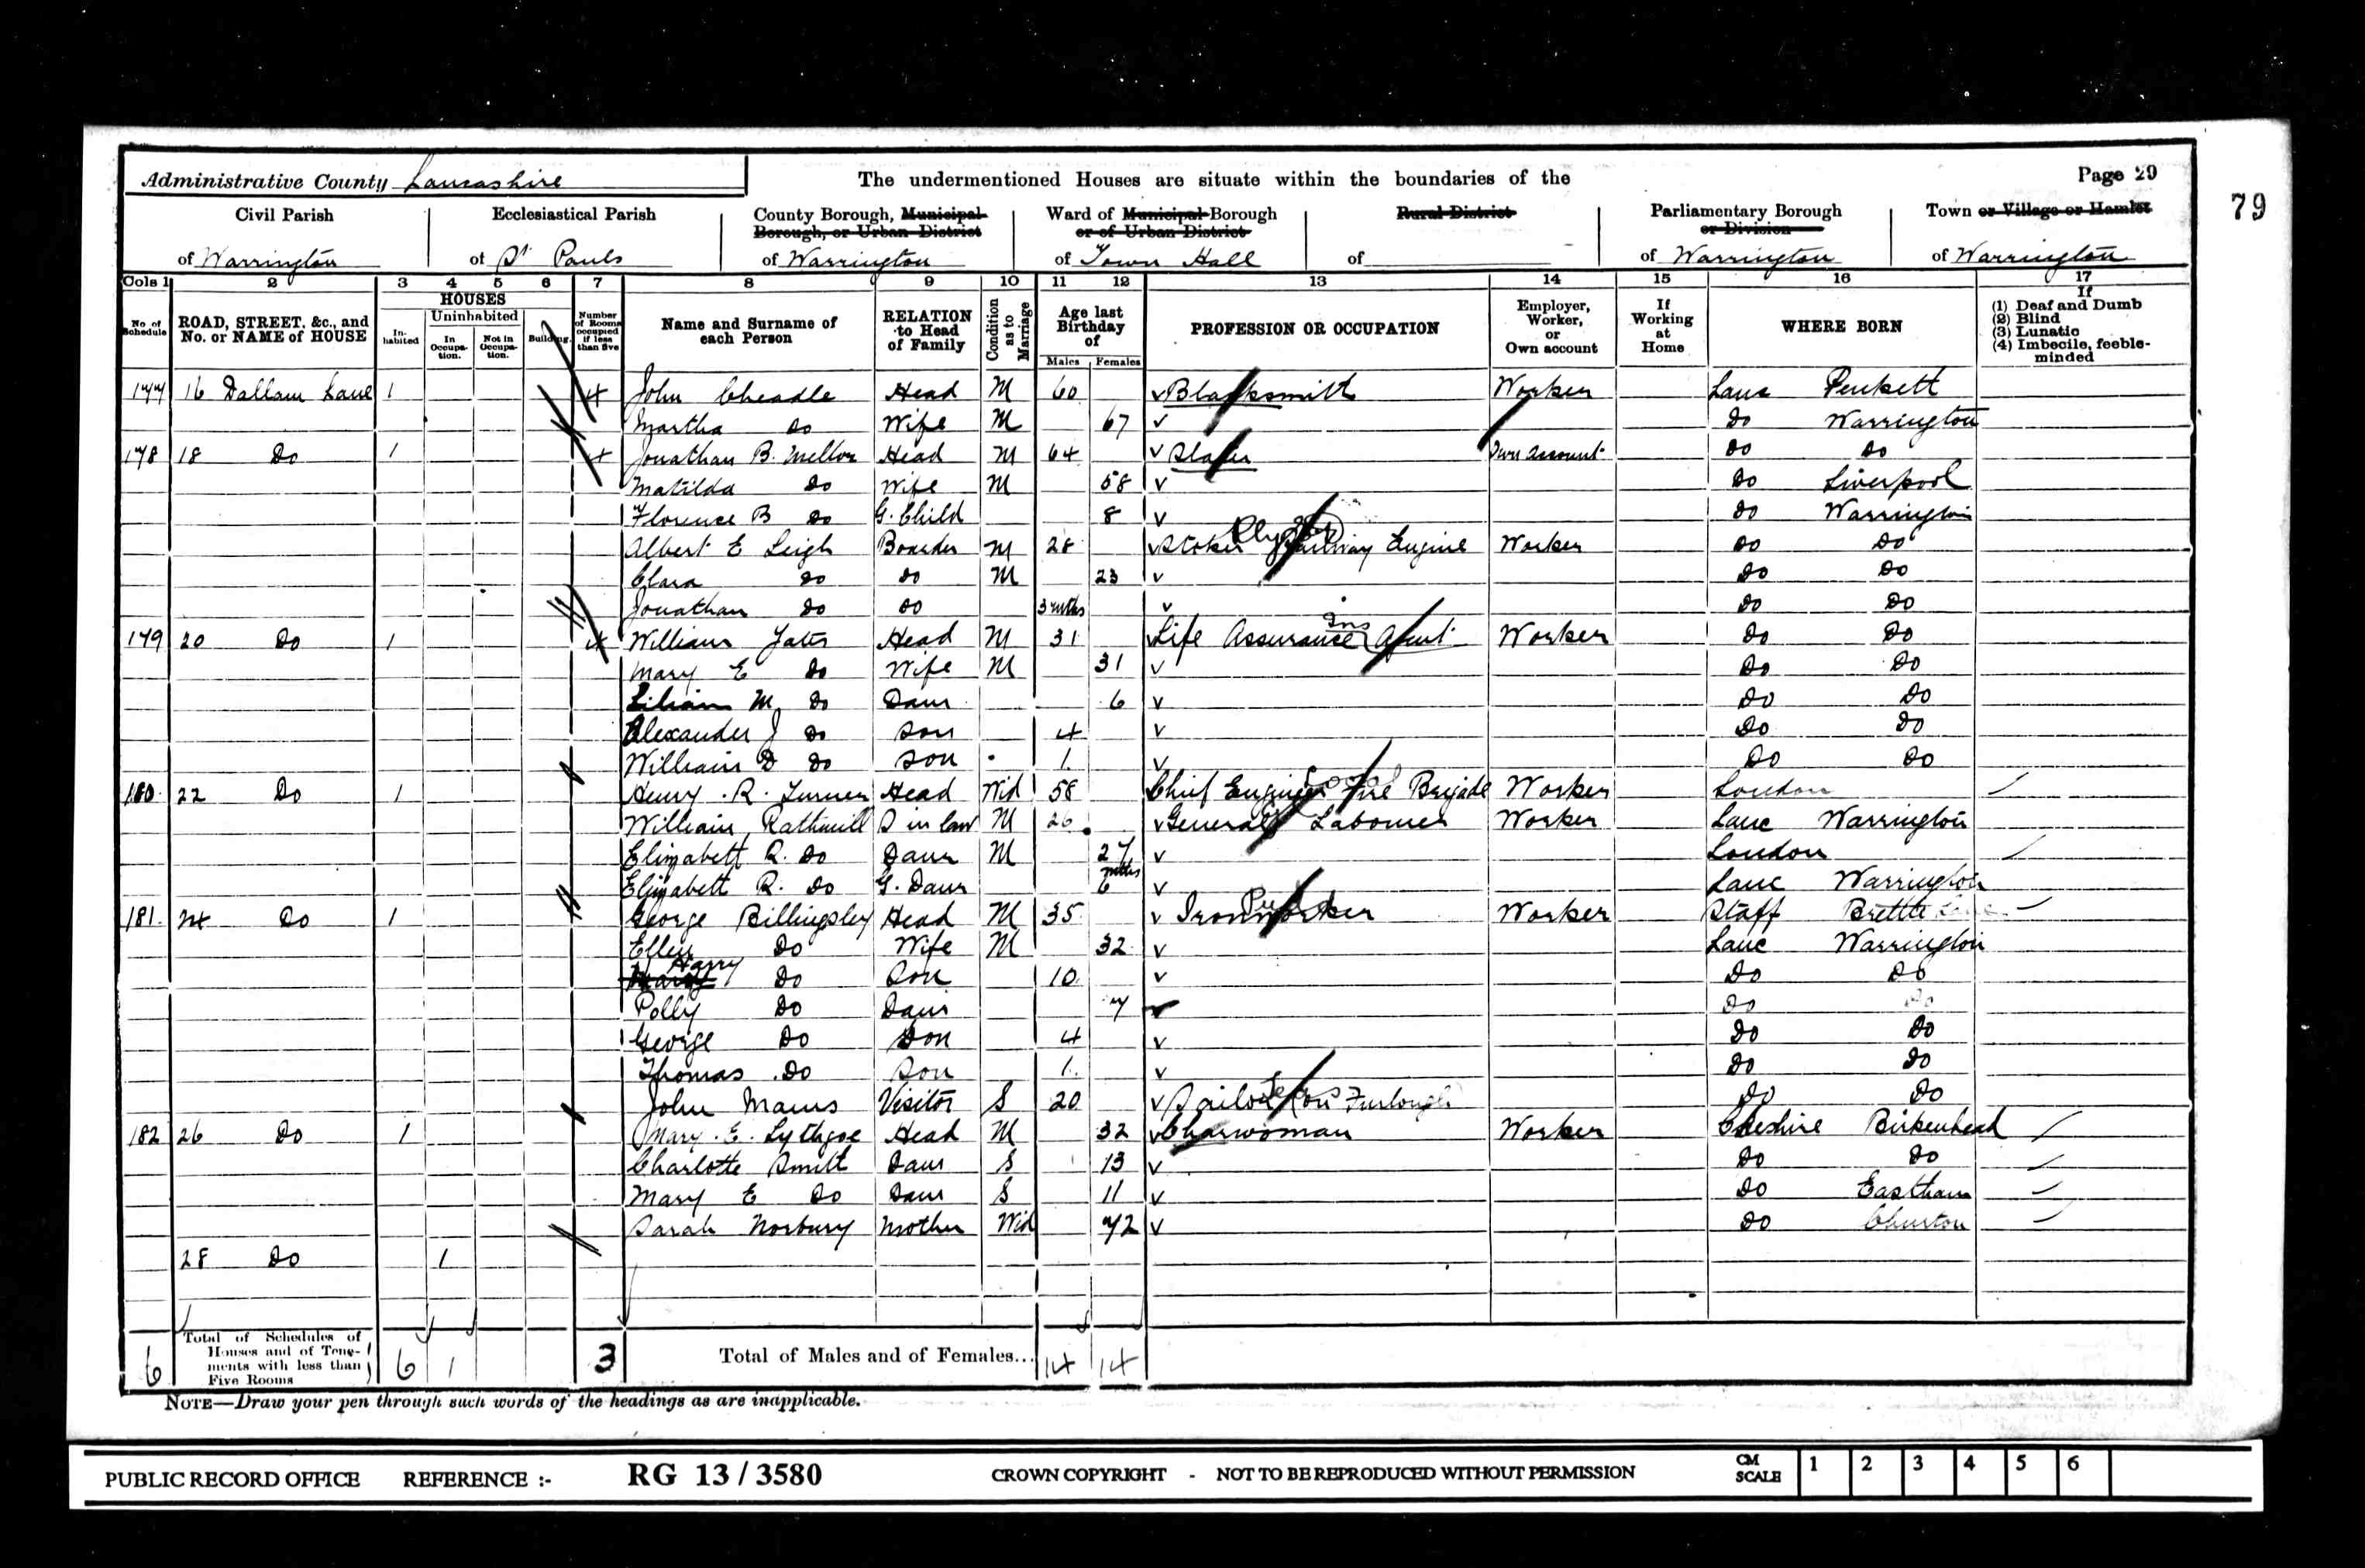 Administrative County Lancashire The undermentioned Houses are situate within the boundaries of the Page 29
79
Civil Parish of Warrington
Ecclesiastical Parish of St Pauls
County Borough, Municipal Borough, or Urban District of Warrington
Ward of Municipal Borough or of Urban District of Town Hall
Rural District of
Parliamentary Borough or Division of Warrington
Town or Village or Hamlet of Warrington
Cols 1 2 3 4 5 6 7 8 9 10 11 12 13 14 15 16 17
No of Schedule
ROAD, STREET, &c., and No. or NAME of HOUSE
HOUSES
Inhabited
Uninhabited
In Occupation.
Not in Occupation.
Building.
Number of Rooms occupied if less than five
Name and Surname of each Person
RELATION to Head of Family
Condition as to Marriage
Age last Birthday of
Males Females
PROFESSION OR OCCUPATION
Employer, Worker, or Own account
If Working at Home
WHERE BORN
If
(1) Deaf and Dumb
(2) Blind
(3) Lunatic
(4) Imbecile, feeble-minded
177 16 Dallam Lane 1 4 John Cheadle Head M 60 Blacksmith Worker Lanc Penkett
Martha Do Wife M 67 Do Warrington
178 18 Do 1 4 Jonathan B. Mellor Head M 64 Slater Own account Do Do
Matilda Do Wife M 58 Do Liverpool
Florence B Do G. Child 8 Do Warrington
Albert E Leigh Boarder M 28 Stoker Railway Engine Worker Do Do
Clara Do Do M 23 Do Do
Jonathan Do Do 3 mths Do Do
179 20 Do 1 4 William Yates Head M 31 Life Assurance Ins Agent Worker Do Do
Mary E Do Wife M 31 Do Do
Lilian M Do Daur 6 Do Do
Alexander J Do Son 4 Do Do
William D Do Son 1 Do Do
180 22 Do 1 Henry R. Turner Head Wid 58 Chief Engineer Fire Brigade Worker London
William Rathmill S in law M 26 General Labourer Worker Lanc Warrington
Elizabeth R. Do Daur M 27 London
Elizabeth R. Do G. Daur 6 mths Lanc Warrington
181 24 Do 1 George Billingsley Head M 35 Ironworker Worker Staff Brettle
Ellen Do Wife M 32 Lanc Warrington
Harry Do Son 10 Do Do
Polly Do Daur 7 Do Do
George Do Son 4 Do Do
Thomas Do Son 1 Do Do
John Manus Visitor S 20 Sailor (on Furlough) Do Do
182 26 Do 1 Mary E. Lythgoe Head M 32 Charwoman Worker Cheshire Birkenhead
Charlotte Smith Daur S 13 Do Do
Mary E Do Daur S 11 Do Eastham
Sarah Norbury Mother Wid 72 Do Churton
28 Do 1
6 Total of Schedules of Houses and of Tenements with less than Five Rooms 6 1 3 Total of Males and of Females... 14 14
NOTE—Draw your pen through such words of the headings as are inapplicable.
PUBLIC RECORD OFFICE REFERENCE :- RG 13 / 3580 CROWN COPYRIGHT - NOT TO BE REPRODUCED WITHOUT PERMISSION CM SCALE 1 2 3 4 5 6